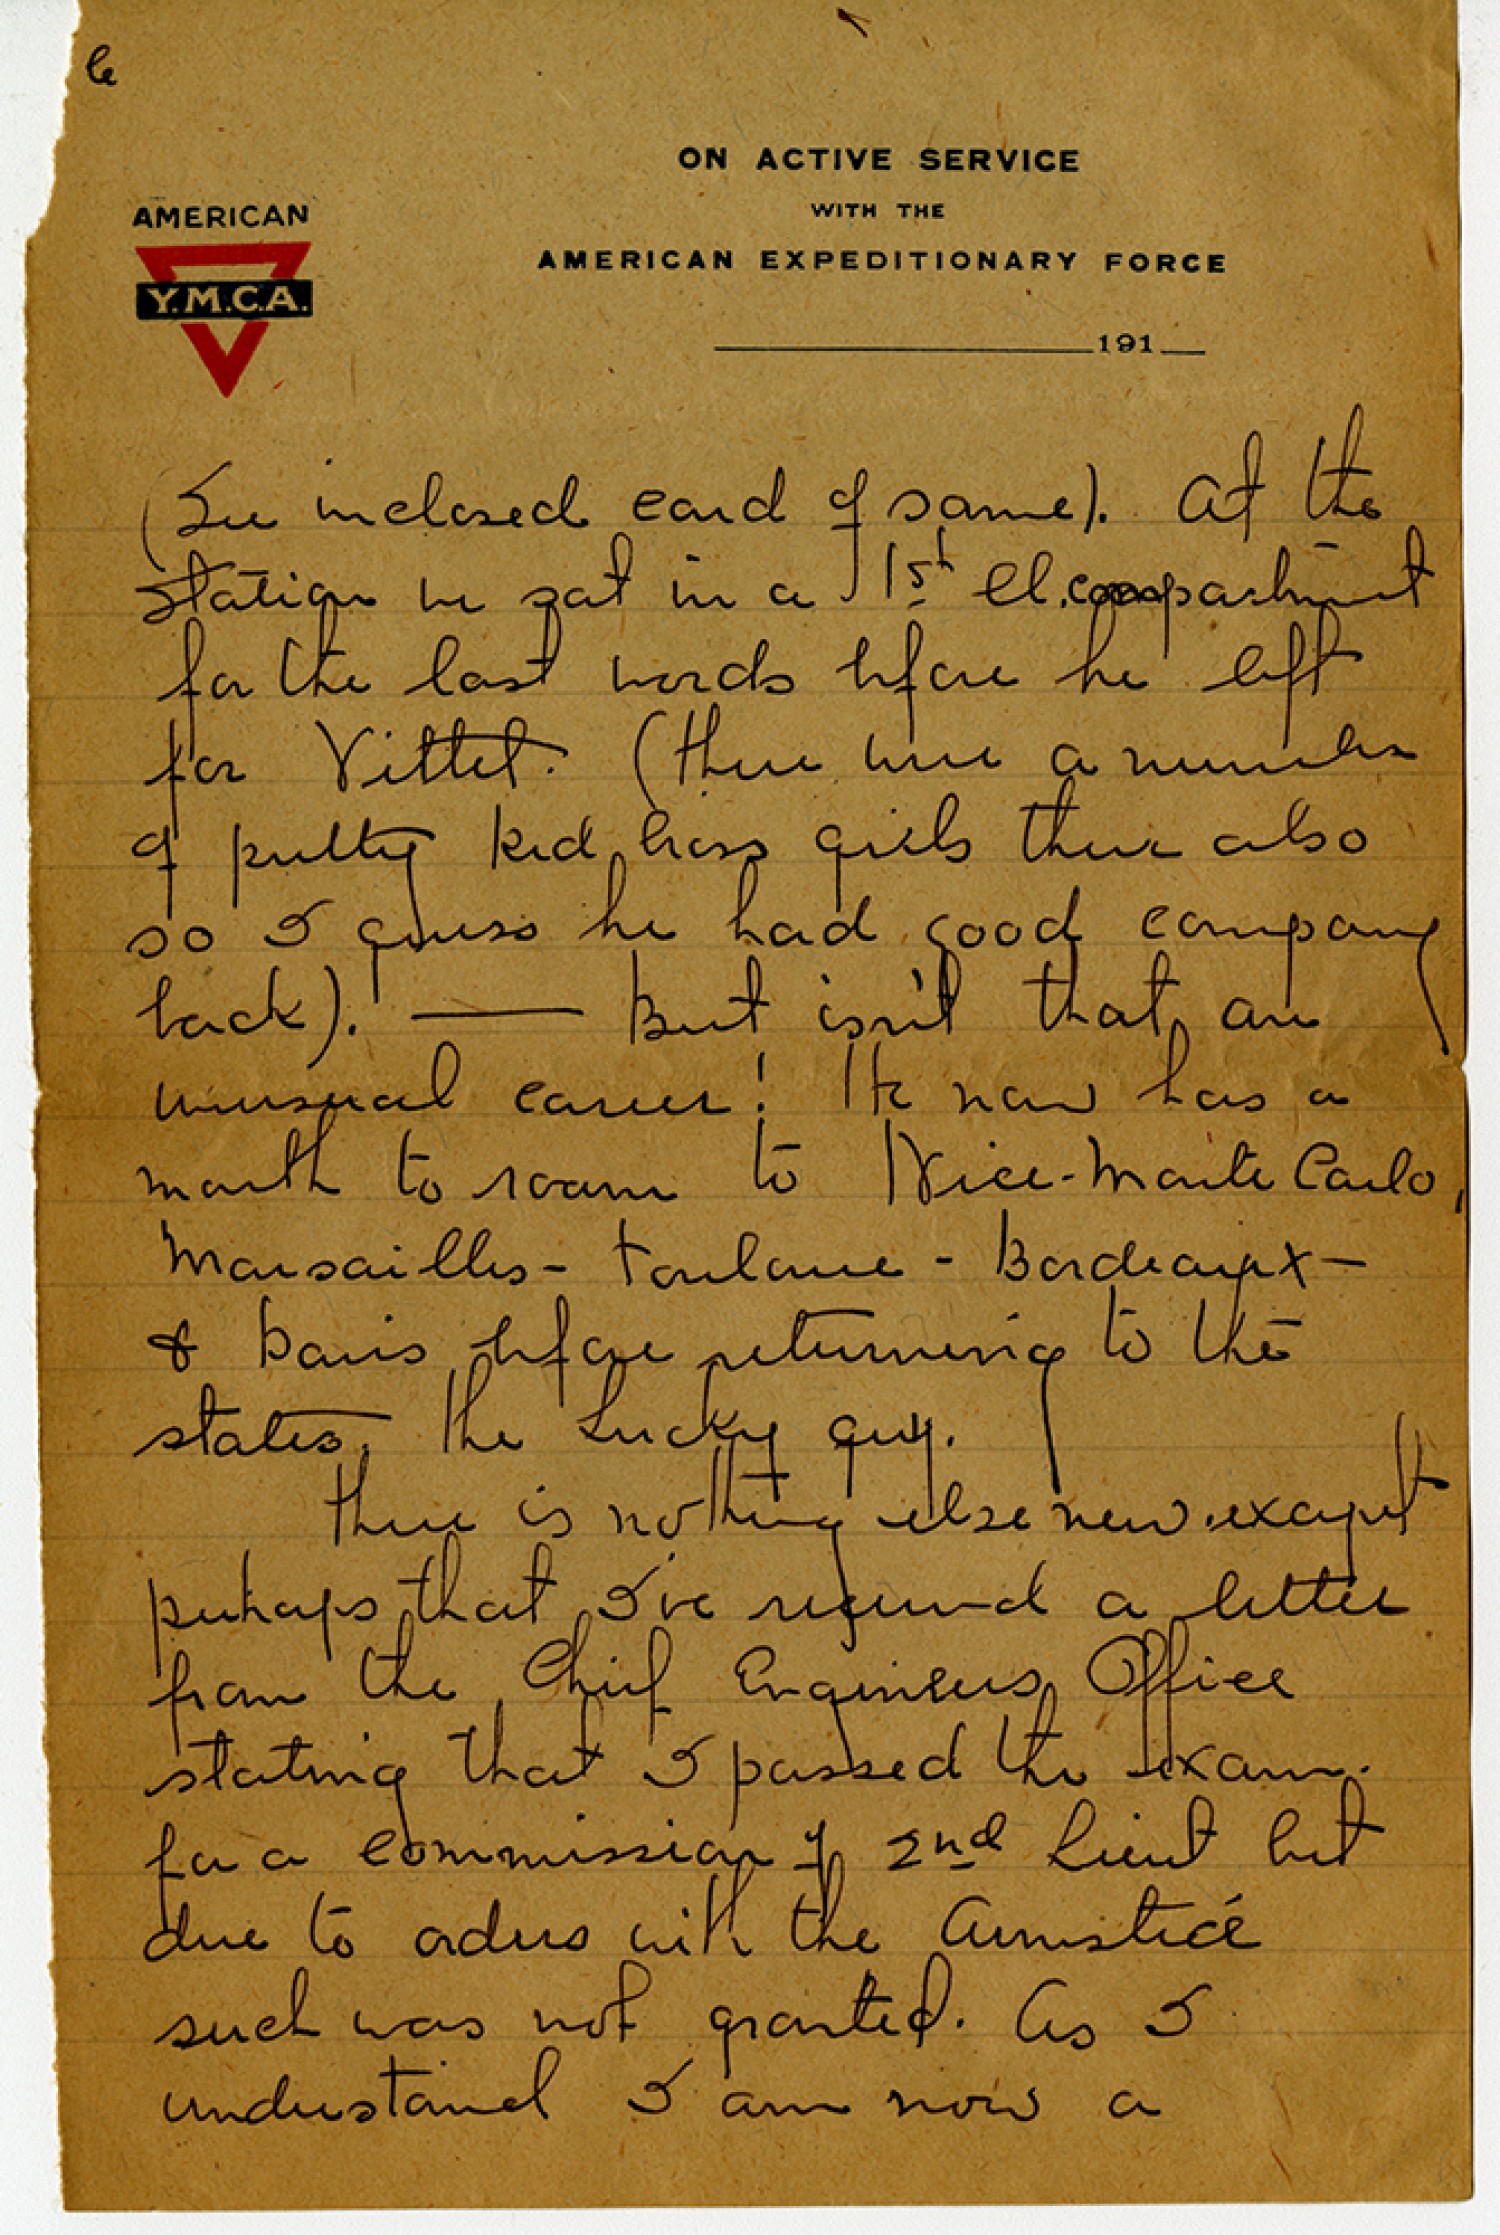 ON ACTIVE SERVICE
WITH THE
AMERICAN EXPEDITIONARY FORCE
AMERICAN
Y.M.C.A.
191
(See inclosed card of same). At the
station we sat in a 1st Cl. compartment
for the last words before he left
for Vittel. (there were a number
of pretty Red Cross girls there also
so I guess he had good company
back). — But isn't that an
unusual career! He now has a
month to roam to Nice - Monte Carlo,
Marsailles - Toulane - Bordeaux -
& Paris before returning to the
states, the Lucky guy.
There is nothing else new except
perhaps that I've received a letter
from the Chief Engineers Office
stating that I passed the exam.
for a commission of 2nd Lieut but
due to orders with the Armistice
such was not granted. As I
understand I am now a